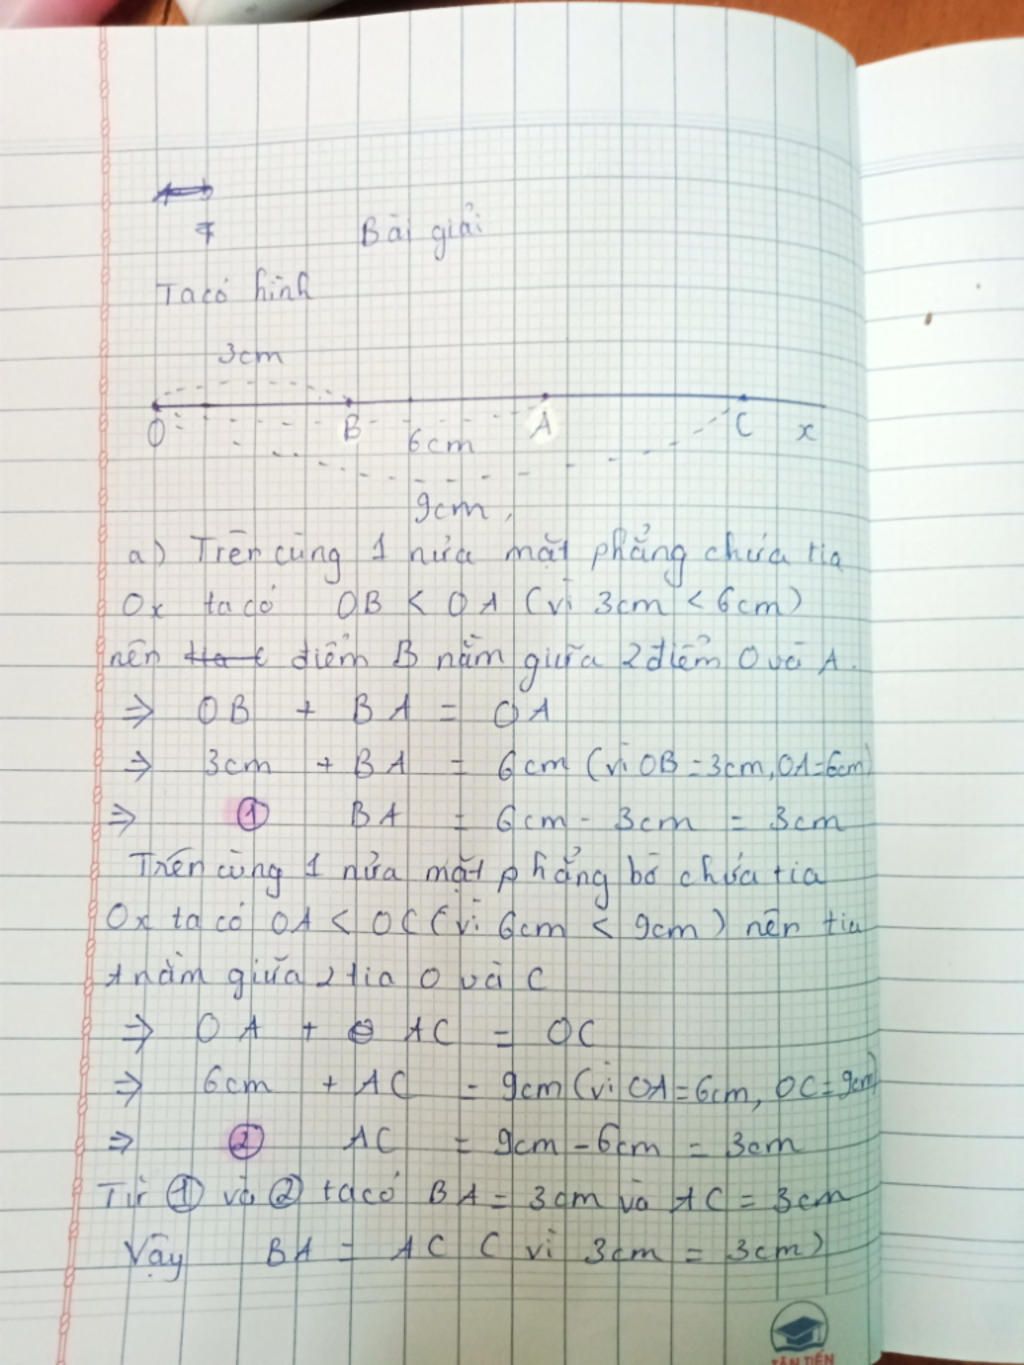 Bài giải
Ta có hình
3cm
O B A C x
6cm
9cm
a) Trên cùng 1 nửa mặt phẳng chứa tia
Ox ta có OB < OA (vì 3cm < 6cm)
nên điểm B nằm giữa 2 điểm O và A.
=> OB + BA = OA
=> 3cm + BA = 6cm (vì OB = 3cm, OA = 6cm)
=> ① BA = 6cm - 3cm = 3cm
Trên cùng 1 nửa mặt phẳng bờ chứa tia
Ox ta có OA < OC (vì 6cm < 9cm) nên tia
A nằm giữa 2 tia O và C
=> OA + AC = OC
=> 6cm + AC = 9cm (vì OA = 6cm, OC = 9cm)
=> ② AC = 9cm - 6cm = 3cm
Từ ① và ② ta có BA = 3cm và AC = 3cm
Vậy BA = AC (vì 3cm = 3cm)
TÂN TIẾN